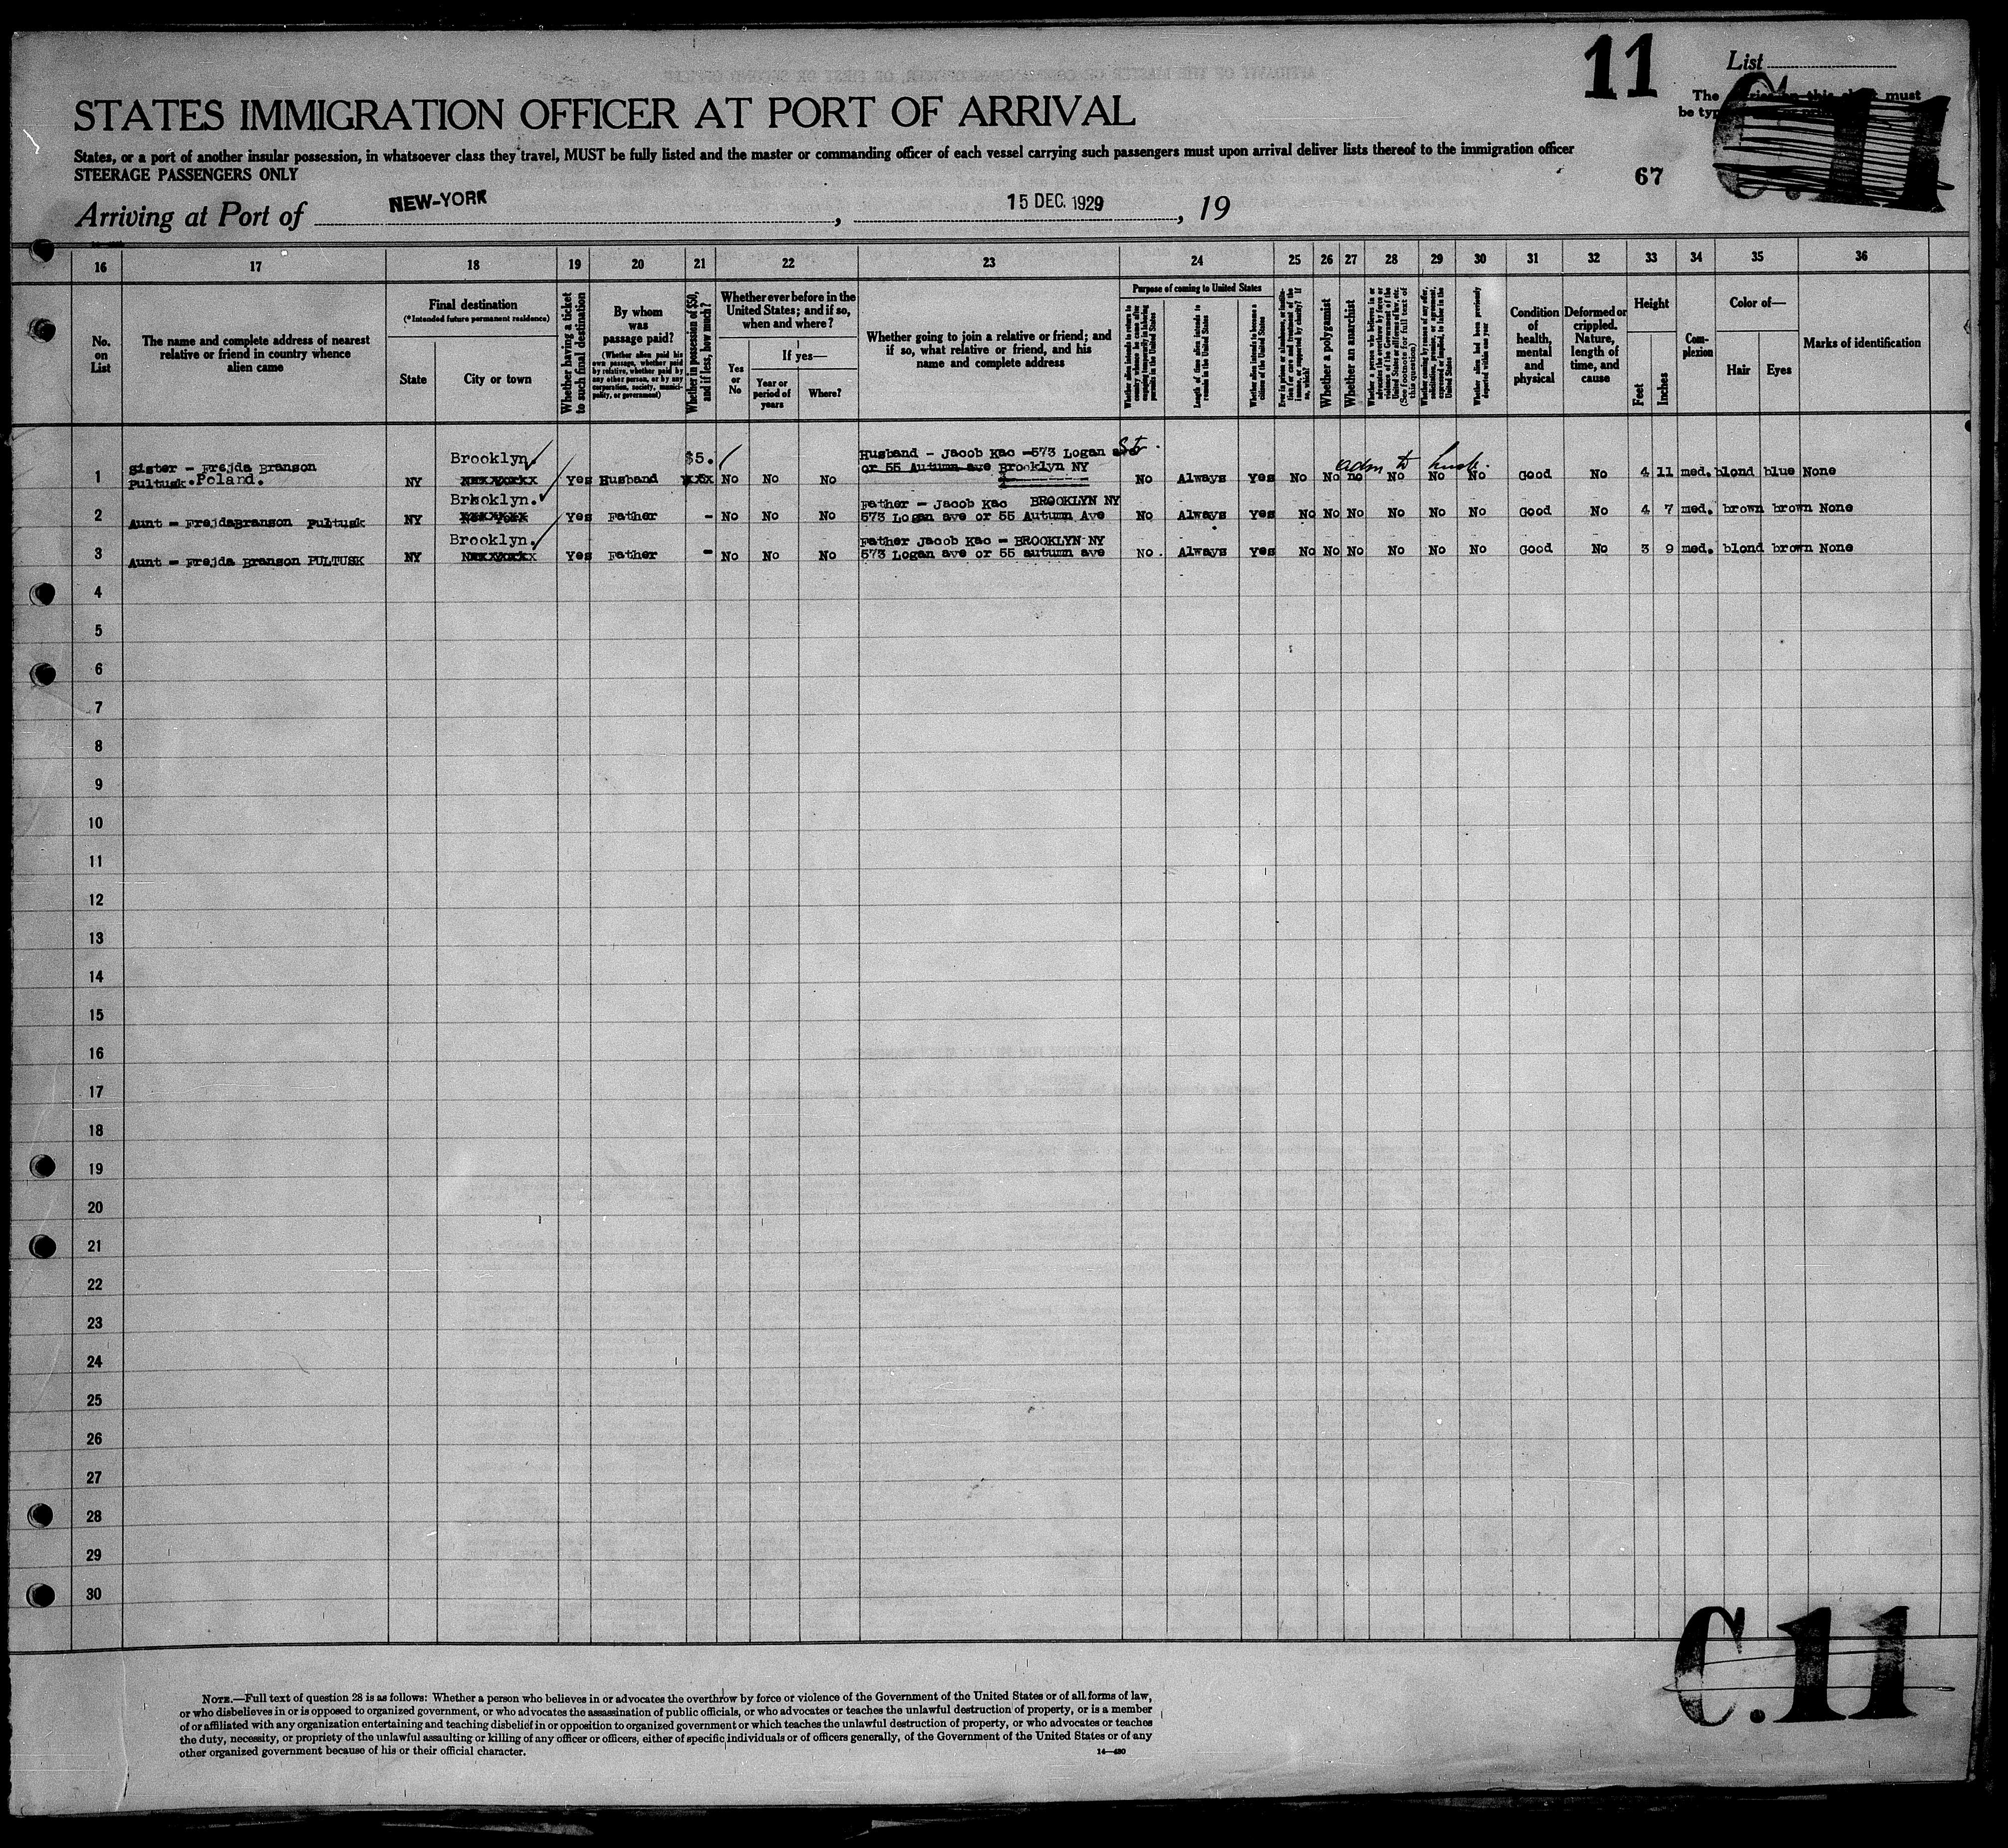 11
List
The
must
be
67
STATES IMMIGRATION OFFICER AT PORT OF ARRIVAL
States, or a port of another insular possession, in whatsoever class they travel, MUST be fully listed and the master or commanding officer of each vessel carrying such passengers must upon arrival deliver lists thereof to the immigration officer
STEERAGE PASSENGERS ONLY
Arriving at Port of NEW-YORK, 15 DEC. 1929, 19
16 17 18 19 20 21 22 23 24 25 26 27 28 29 30 31 32 33 34 35 36
No. on List
The name and complete address of nearest relative or friend in country whence alien came
Final destination
(*Intended future permanent residence)
State
City or town
Whether having a ticket to such final destination
By whom was passage paid?
(Whether alien paid his own passage, whether paid by relative, whether paid by any other person, or by any corporation, society, municipality, or government)
Whether in possession of $50, and if less, how much?
Whether ever before in the United States; and if so, when and where?
Yes or No
If yes—
Year or period of years
Where?
Whether going to join a relative or friend; and if so, what relative or friend, and his name and complete address
Purpose of coming to United States
Length of time alien intends to remain in the United States
Whether alien intends to become a citizen of the United States
Whether a polygamist
Whether an anarchist
(See footnote for full text of this question)
Whether alien had been previously deported within one year
Condition of health, mental and physical
Deformed or crippled. Nature, length of time, and cause
Height
Feet
Inches
Complexion
Color of—
Hair
Eyes
Marks of identification
1 Sister - Frejda Branson Pultusk.Poland. NY Brooklyn. Yes Husband $5. No No No Husband - Jacob Kac -573 Logan St. or 55 Autumn ave Brooklyn NY No Always Yes No No no No No No Good No 4 11 med. blond blue None
adm to husb.
2 Aunt - FrejdaBranson Pultusk NY Brooklyn. Yes Father - No No No Father - Jacob Kac BROOKLYN NY 573 Logan ave or 55 Autumn Ave No Always Yes No No No No No No Good No 4 7 med. brown brown None
3 Aunt - Frejda Branson PULTUSK NY Brooklyn. Yes Father - No No No Father Jacob Kac - BROOKLYN NY 573 Logan ave or 55 autumn ave No. Always Yes No No No No No No Good No 3 9 med. blond brown None
4
5
6
7
8
9
10
11
12
13
14
15
16
17
18
19
20
21
22
23
24
25
26
27
28
29
30
C.11
NOTE.—Full text of question 28 is as follows: Whether a person who believes in or advocates the overthrow by force or violence of the Government of the United States or of all forms of law,
or who disbelieves in or is opposed to organized government, or who advocates the assassination of public officials, or who advocates or teaches the unlawful destruction of property, or is a member
of or affiliated with any organization entertaining and teaching disbelief in or opposition to organized government or which teaches the unlawful destruction of property, or who advocates or teaches
the duty, necessity, or propriety of the unlawful assaulting or killing of any officer or officers, either of specific individuals or of officers generally, of the Government of the United States or of any
other organized government because of his or their official character.
14—430